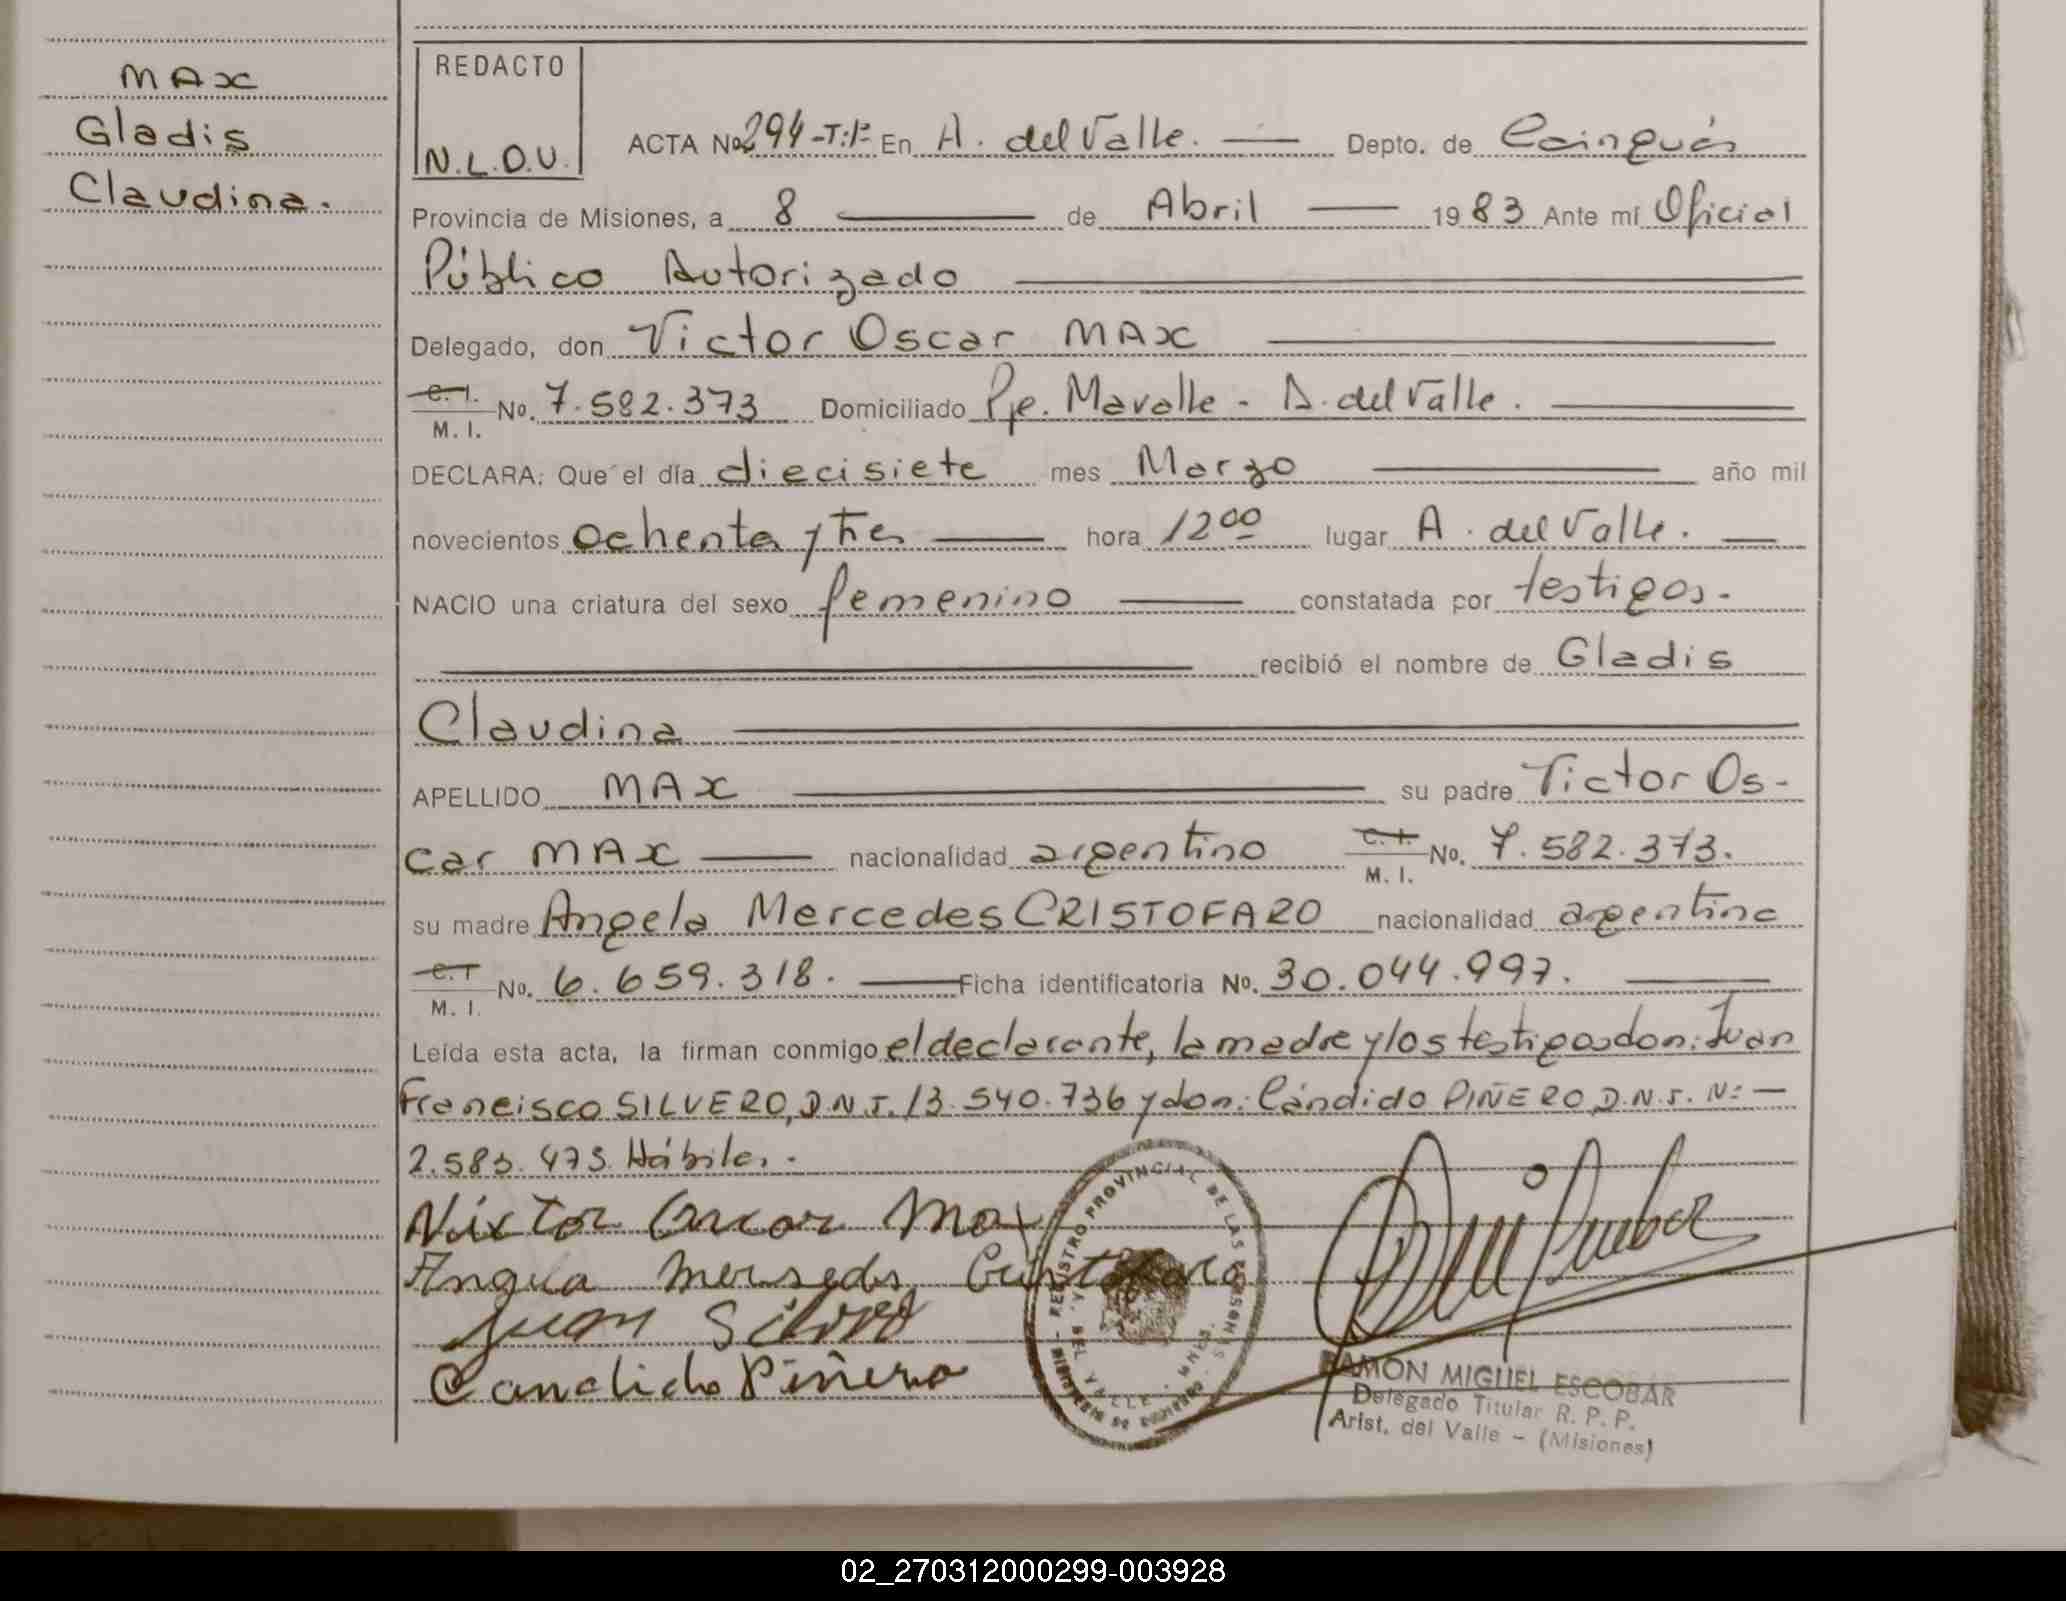 MAX
Gladis
Claudina.
REDACTO
N.L.O.U.
ACTA No. 294-T:1º En A. del Valle. Depto. de Cainguás
Provincia de Misiones, a 8 de Abril 1983 Ante mí Oficial
Público Autorizado
Delegado, don Victor Oscar MAX
C. I.
M. I. No. 7.582.373 Domiciliado Pje. Mavalle - A. del Valle.
DECLARA: Que el día diecisiete mes Marzo año mil
novecientos ochenta y tres hora 12 00 lugar A. del Valle.
NACIO una criatura del sexo femenino constatada por testigos.
recibió el nombre de Gladis
Claudina
APELLIDO MAX su padre Victor Os-
car MAX nacionalidad argentino C. I. M. I. No. 7.582.373.
su madre Angela Mercedes CRISTOFARO nacionalidad argentina
C. I.
M. I. No. 6.659.318. Ficha identificatoria No. 30.044.997.
Leída esta acta, la firman conmigo el declarante, la madre y los testigos don: Juan
Francisco SILVERO, D.N.I. 13.540.736 y don: Cándido PIÑERO D.N.I. Nº: —
2.583.473. Hábiles.
Victor Oscar Max
Angela Mersedes Cristofaro
Juan Silvero
Candido Piñero
REGISTRO PROVINCIAL DE LAS PERSONAS
DEL VALLE
RAMON MIGUEL ESCOBAR
Delegado Titular R. P. P.
Arist. del Valle - (Misiones)
02_270312000299-003928